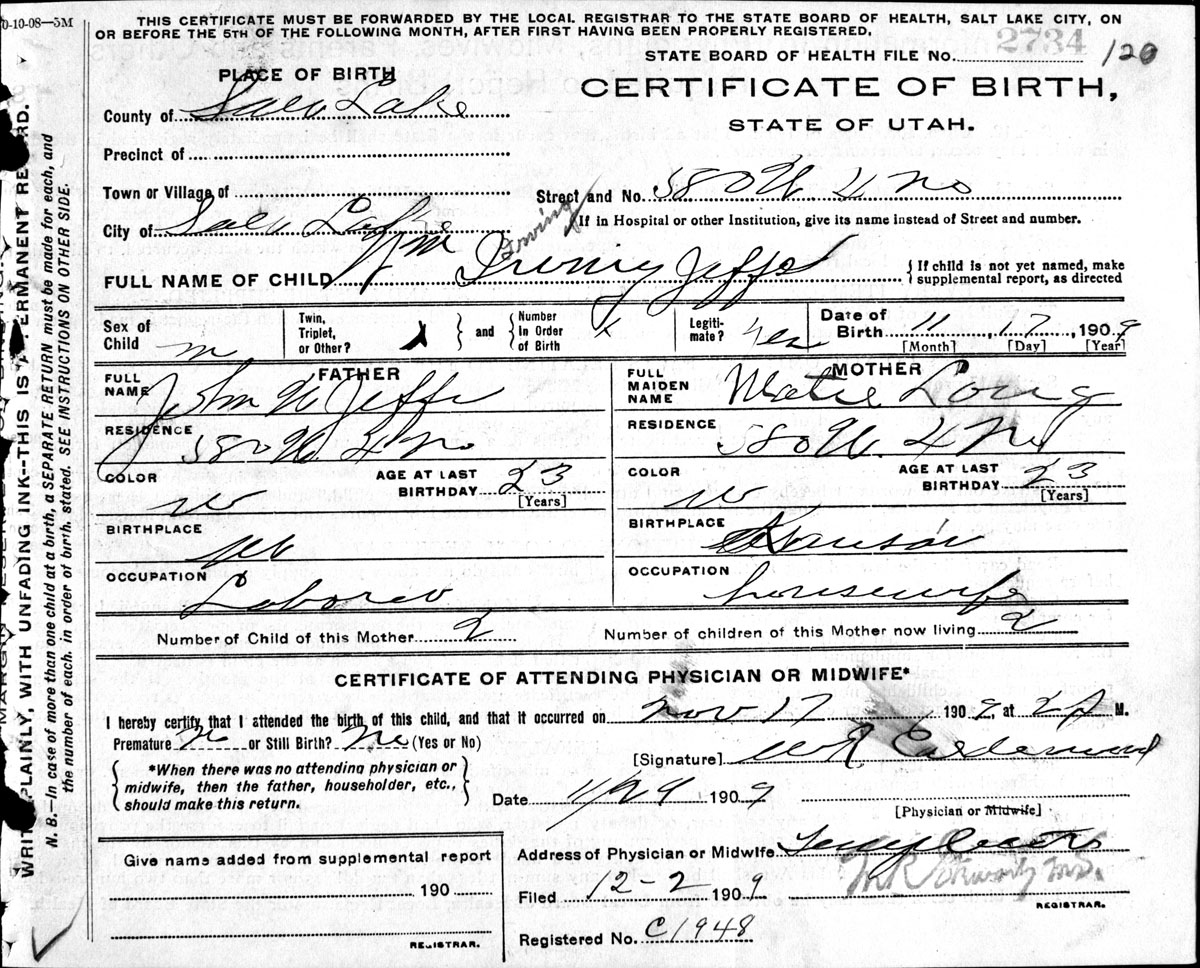 0-10-08—5M
THIS CERTIFICATE MUST BE FORWARDED BY THE LOCAL REGISTRAR TO THE STATE BOARD OF HEALTH, SALT LAKE CITY, ON
OR BEFORE THE 5TH OF THE FOLLOWING MONTH, AFTER FIRST HAVING BEEN PROPERLY REGISTERED.
STATE BOARD OF HEALTH FILE No. 2734 120
PLACE OF BIRTH
CERTIFICATE OF BIRTH,
STATE OF UTAH.
County of Salt Lake
Precinct of
Town or Village of
Street and No. 580 W 4 No
City of Salt Lake
If in Hospital or other Institution, give its name instead of Street and number.
Irving
FULL NAME OF CHILD Wm Irving Jeffs
If child is not yet named, make
supplemental report, as directed
Sex of Child m
Twin, Triplet, or Other?
and
Number In Order of Birth
Legitimate? yes
Date of Birth 11 17, 1909
[Month] [Day] [Year]
FATHER
FULL NAME John W Jeffs
RESIDENCE 580 W. 4 No
COLOR w
AGE AT LAST BIRTHDAY 23
[Years]
BIRTHPLACE
OCCUPATION Laborer
MOTHER
FULL MAIDEN NAME Long
RESIDENCE 580 W. 4 No
COLOR w
AGE AT LAST BIRTHDAY 23
[Years]
BIRTHPLACE Kansas
OCCUPATION housewife
Number of Child of this Mother 2
Number of children of this Mother now living 2
CERTIFICATE OF ATTENDING PHYSICIAN OR MIDWIFE*
I hereby certify that I attended the birth of this child, and that it occurred on Nov 17 1909, at 2 M.
Premature No or Still Birth? No (Yes or No)
[Signature] Calderwood
*When there was no attending physician or
midwife, then the father, householder, etc.,
should make this return.
Date 11/29 1909
[Physician or Midwife]
Give name added from supplemental report
190
REGISTRAR.
Address of Physician or Midwife
Filed 12-2 1909
M.D.
REGISTRAR.
Registered No. C1948
WRITE PLAINLY, WITH UNFADING INK—THIS IS A PERMANENT RECORD.
N. B.—In case of more than one child at a birth, a SEPARATE RETURN must be made for each, and
the number of each, in order of birth, stated. SEE INSTRUCTIONS ON OTHER SIDE.